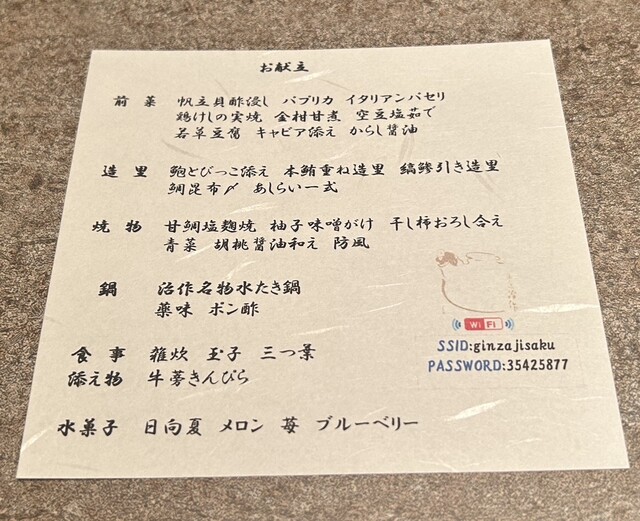 お献立
前菜 帆立貝酢浸し パプリカ イタリアンパセリ
鶏けしの実焼 金柑甘煮 空豆塩茹で
若草豆腐 キャビア添え からし醤油
造里 鮑とびっこ添え 本鮪重ね造里 縞鯵引き造里
鯛昆布〆 あしらい一式
焼物 甘鯛塩麹焼 柚子味噌がけ 干し柿おろし合え
青菜 胡桃醤油和え 防風
鍋 治作名物水たき鍋
薬味 ポン酢
食事 雑炊 玉子 三つ葉
添え物 牛蒡きんぴら
水菓子 日向夏 メロン 苺 ブルーベリー
WiFi
SSID:ginzajisaku
PASSWORD:35425877